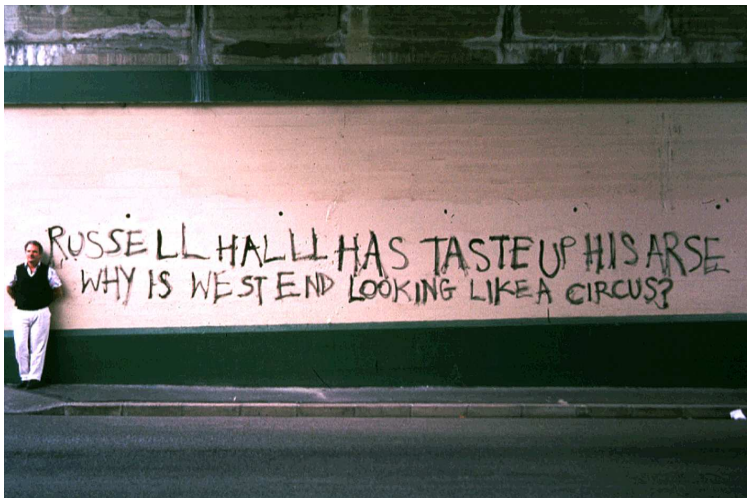 RUSSELL HALLL HAS TASTE UP HIS ARSE
WHY IS WEST END LOOKING LIKE A CIRCUS?